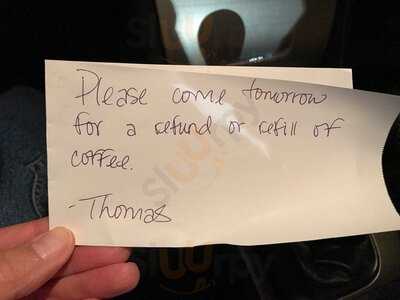 Please come tomorrow
for a refund or refill of
coffee.
- Thomas